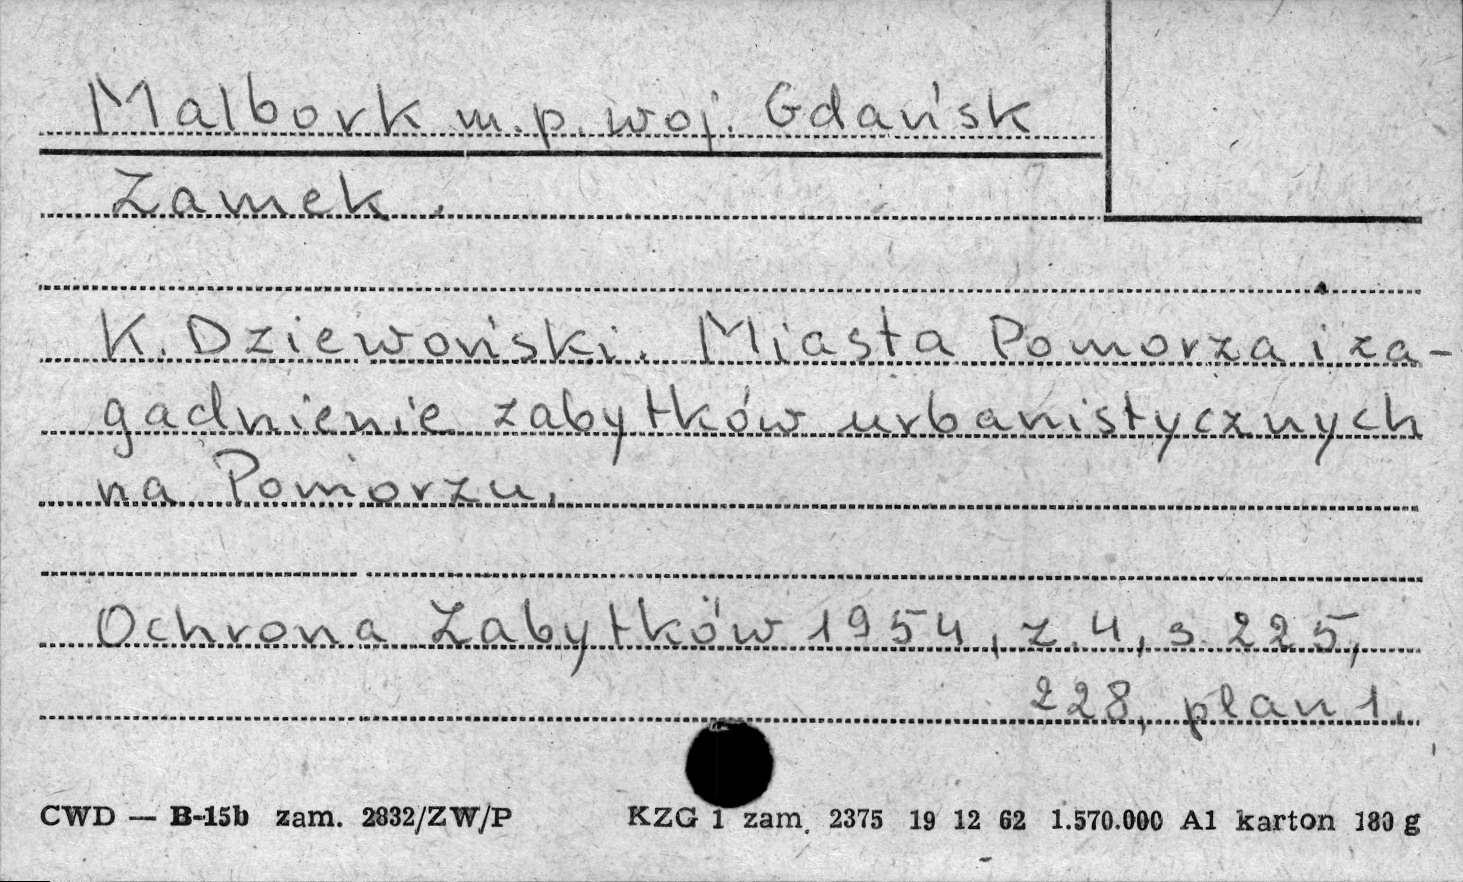 Malbork m.p. woj. Gdańsk
Zamek.
K. Dziewoński. Miasta Pomorza i za-
gadnienie zabytków urbanistycznych
na Pomorzu.
Ochrona Zabytków 1954, z. 4, s. 225,
228, plan 1.
CWD — B-15b zam. 2832/ZW/P KZG 1 zam. 2375 19 12 62 1.570.000 A1 karton 180 g